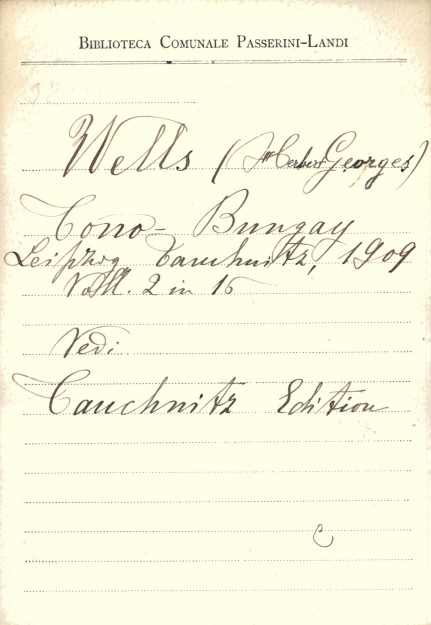 BIBLIOTECA COMUNALE PASSERINI-LANDI
Wells (Herbert Georges)
Tono-Bungay
Leipzig Tauchnitz, 1909
Voll. 2 in 16
Vedi
Tauchnitz Edition
C